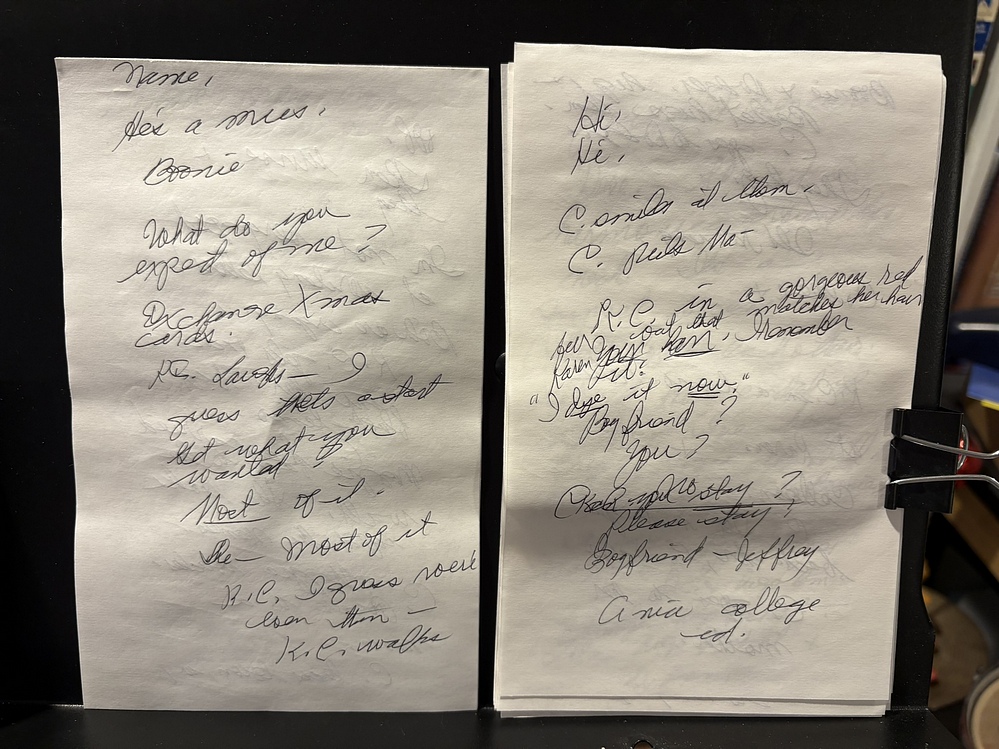 Name,
He's a mess.
Boonie
What do you
expect of me?
Exchange Xmas
cards.
Laughs — I
guess thats a start
Get what you
wanted?
Most of it.
He — Most of it
K.C. I guess we're
even then —
K.C. walks
Hi,
Hi,
C. smiles at them.
C. Ma-
K.C. in a gorgeous red
out that matches her hair
Karen your hair, I remember
it?
"I dye it now."
Boyfriend?
You?
stay?
Please stay?
Boyfriend – Jeffrey
A nice college
ed.